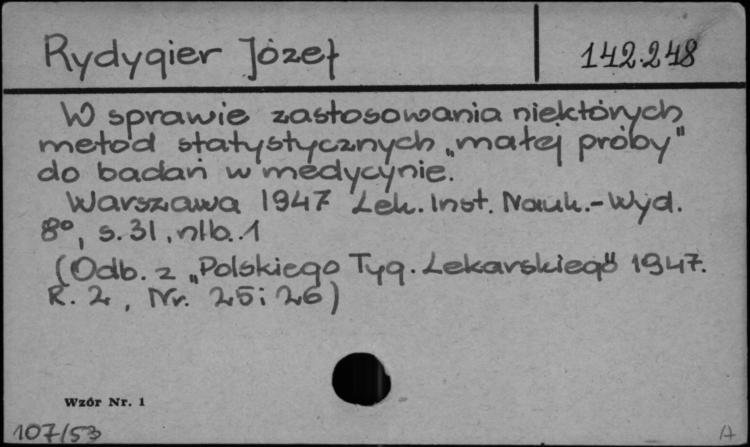 Rydygier Józef
142.248
W sprawie zastosowania niektórych
metod statystycznych „małej próby"
do badań w medycynie.
Warszawa 1947 Lek. Inst. Nauk.-Wyd.
8°, s. 31, nlb. 1
(Odb. z „Polskiego Tyg. Lekarskiego" 1947.
R. 2, Nr. 25 i 26)
Wzór Nr. 1
107/53
A